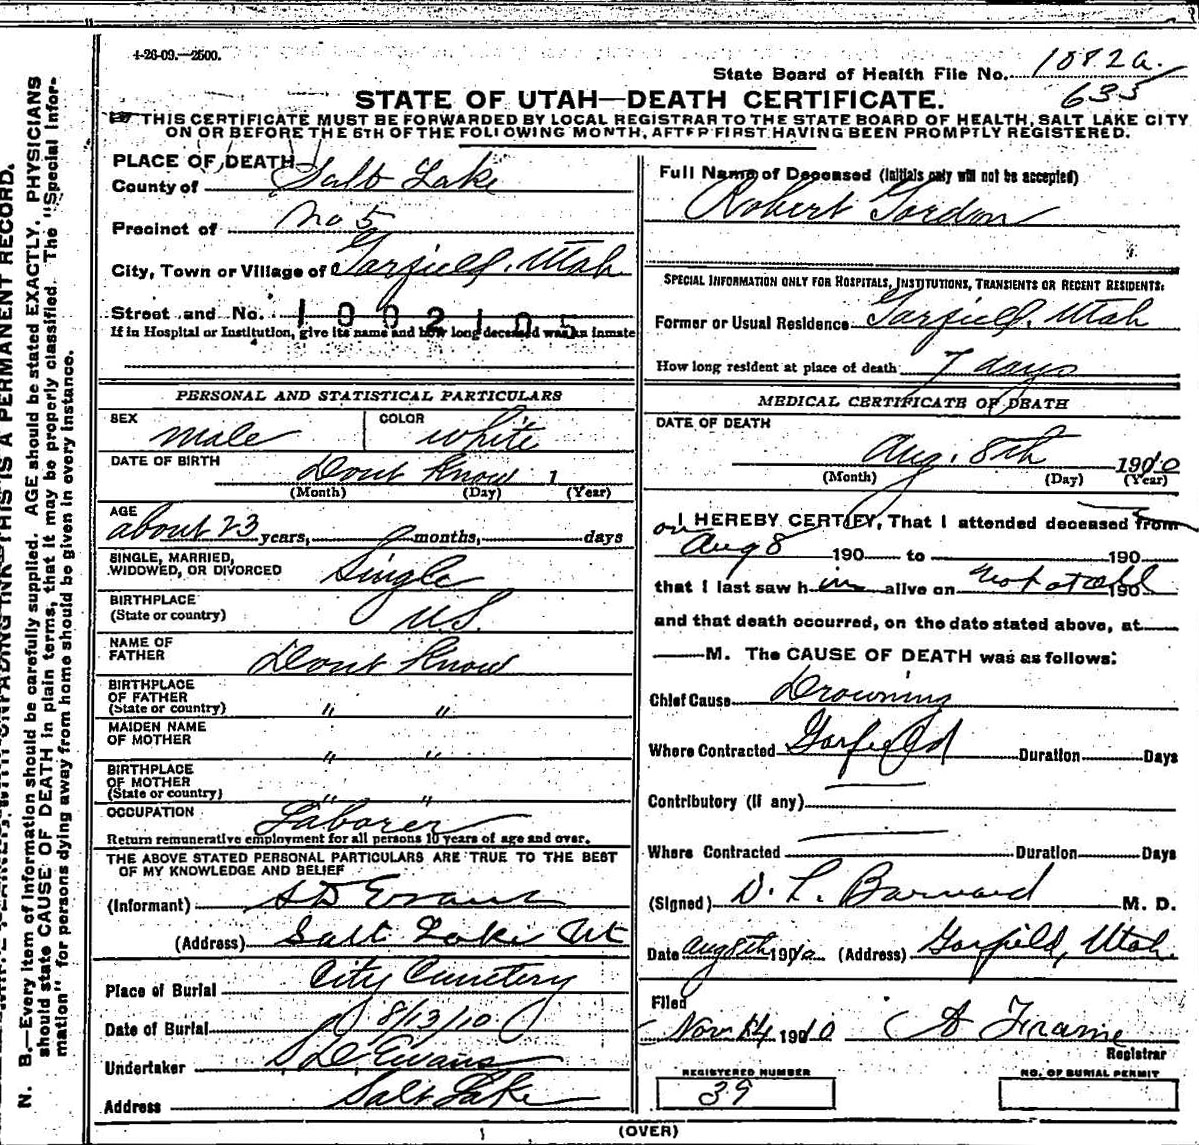 4-26-09.—2500.
State Board of Health File No. 1082a.
635
STATE OF UTAH—DEATH CERTIFICATE.
THIS CERTIFICATE MUST BE FORWARDED BY LOCAL REGISTRAR TO THE STATE BOARD OF HEALTH, SALT LAKE CITY
ON OR BEFORE THE 5TH OF THE FOLLOWING MONTH, AFTER FIRST HAVING BEEN PROMPTLY REGISTERED.
PLACE OF DEATH
County of Salt Lake
Precinct of No 5
City, Town or Village of Garfield, Utah
Street and No. 1002105
If in Hospital or Institution, give its name and how long deceased was an inmate
PERSONAL AND STATISTICAL PARTICULARS
SEX male COLOR white
DATE OF BIRTH Dont Know 1
(Month) (Day) (Year)
AGE
about 23 years, months, days
SINGLE, MARRIED,
WIDOWED, OR DIVORCED Single
BIRTHPLACE
(State or country) U.S.
NAME OF
FATHER Dont Know
BIRTHPLACE
OF FATHER
(State or country) " "
MAIDEN NAME
OF MOTHER " "
BIRTHPLACE
OF MOTHER
(State or country) " "
OCCUPATION Laborer
Return remunerative employment for all persons 10 years of age and over.
THE ABOVE STATED PERSONAL PARTICULARS ARE TRUE TO THE BEST
OF MY KNOWLEDGE AND BELIEF
(Informant) S D Evans
(Address) Salt Lake Ut
Place of Burial City Cemetery
Date of Burial 8/13/10
Undertaker S D Evans
Address Salt Lake
Full Name of Deceased (Initials only will not be accepted)
Robert Gordon
SPECIAL INFORMATION ONLY FOR HOSPITALS, INSTITUTIONS, TRANSIENTS OR RECENT RESIDENTS:
Former or Usual Residence Garfield, Utah
How long resident at place of death 7 days
MEDICAL CERTIFICATE OF DEATH
DATE OF DEATH
Aug. 8th 1910
(Month) (Day) (Year)
I HEREBY CERTIFY, That I attended deceased from
on Aug 8 190 to 190
that I last saw him alive on not at all 190
and that death occurred, on the date stated above, at
M. The CAUSE OF DEATH was as follows:
Chief Cause Drowning
Where Contracted Garfield Duration Days
Contributory (if any)
Where Contracted Duration Days
(Signed) D. L. Barnard M. D.
Date Aug 8th 1910 (Address) Garfield, Utah.
Filed
Nov 14 1910 A Frame
Registrar
REGISTERED NUMBER
39
NO. OF BURIAL PERMIT
(OVER)
THIS IS A PERMANENT RECORD.
N. B.—Every item of information should be carefully supplied. AGE should be stated EXACTLY. PHYSICIANS
should state CAUSE OF DEATH in plain terms, that it may be properly classified. The "Special Infor-
mation" for persons dying away from home should be given in every instance.